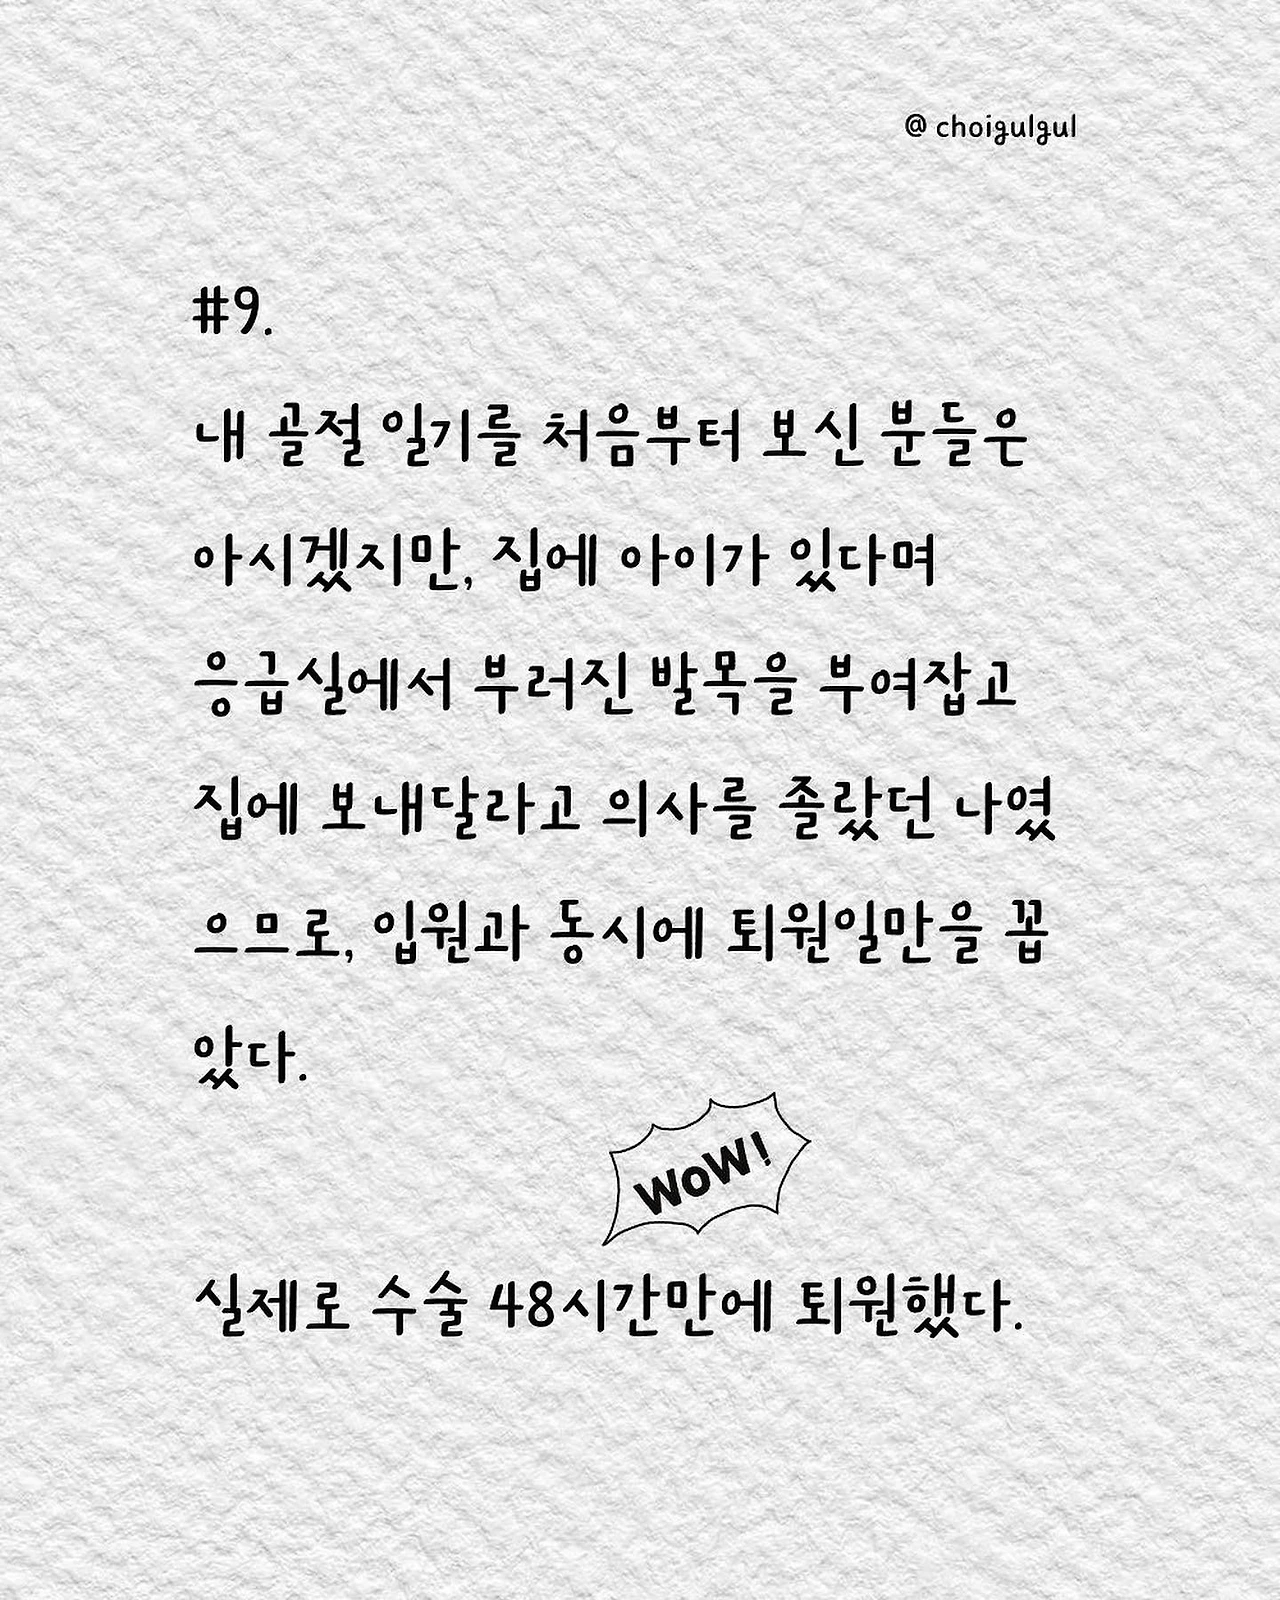 @ choigulgul
#9.
내 골절 일기를 처음부터 보신 분들은
아시겠지만, 집에 아이가 있다며
응급실에서 부러진 발목을 부여잡고
집에 보내달라고 의사를 졸랐던 나였
으므로, 입원과 동시에 퇴원일만을 꼽
았다.
WoW!
실제로 수술 48시간만에 퇴원했다.